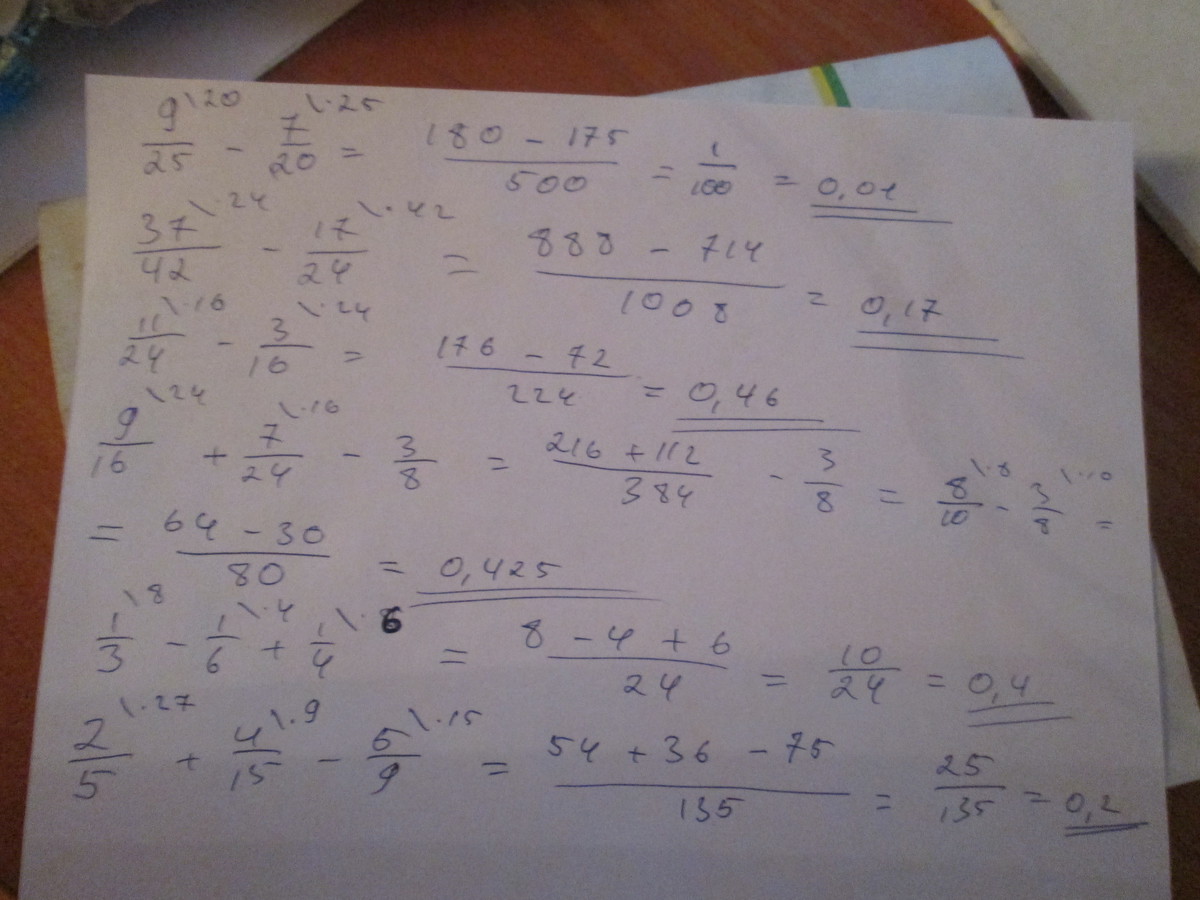 9/25 \20 - 7/20 \·25 = (180 - 175)/500 = 1/100 = 0,01
37/42 \·24 - 17/24 \·42 = (888 - 714)/1008 = 0,17
11/24 \·16 - 3/16 \·24 = (176 - 72)/224 = 0,46
9/16 \24 + 7/24 \·16 - 3/8 = (216 + 112)/384 - 3/8 = 8/10 \·8 - 3/8 \·10 =
= (64 - 30)/80 = 0,425
1/3 \8 - 1/6 \·4 + 1/4 \·6 = (8 - 4 + 6)/24 = 10/24 = 0,4
2/5 \·27 + 4/15 \·9 - 5/9 \·15 = (54 + 36 - 75)/135 = 25/135 = 0,2